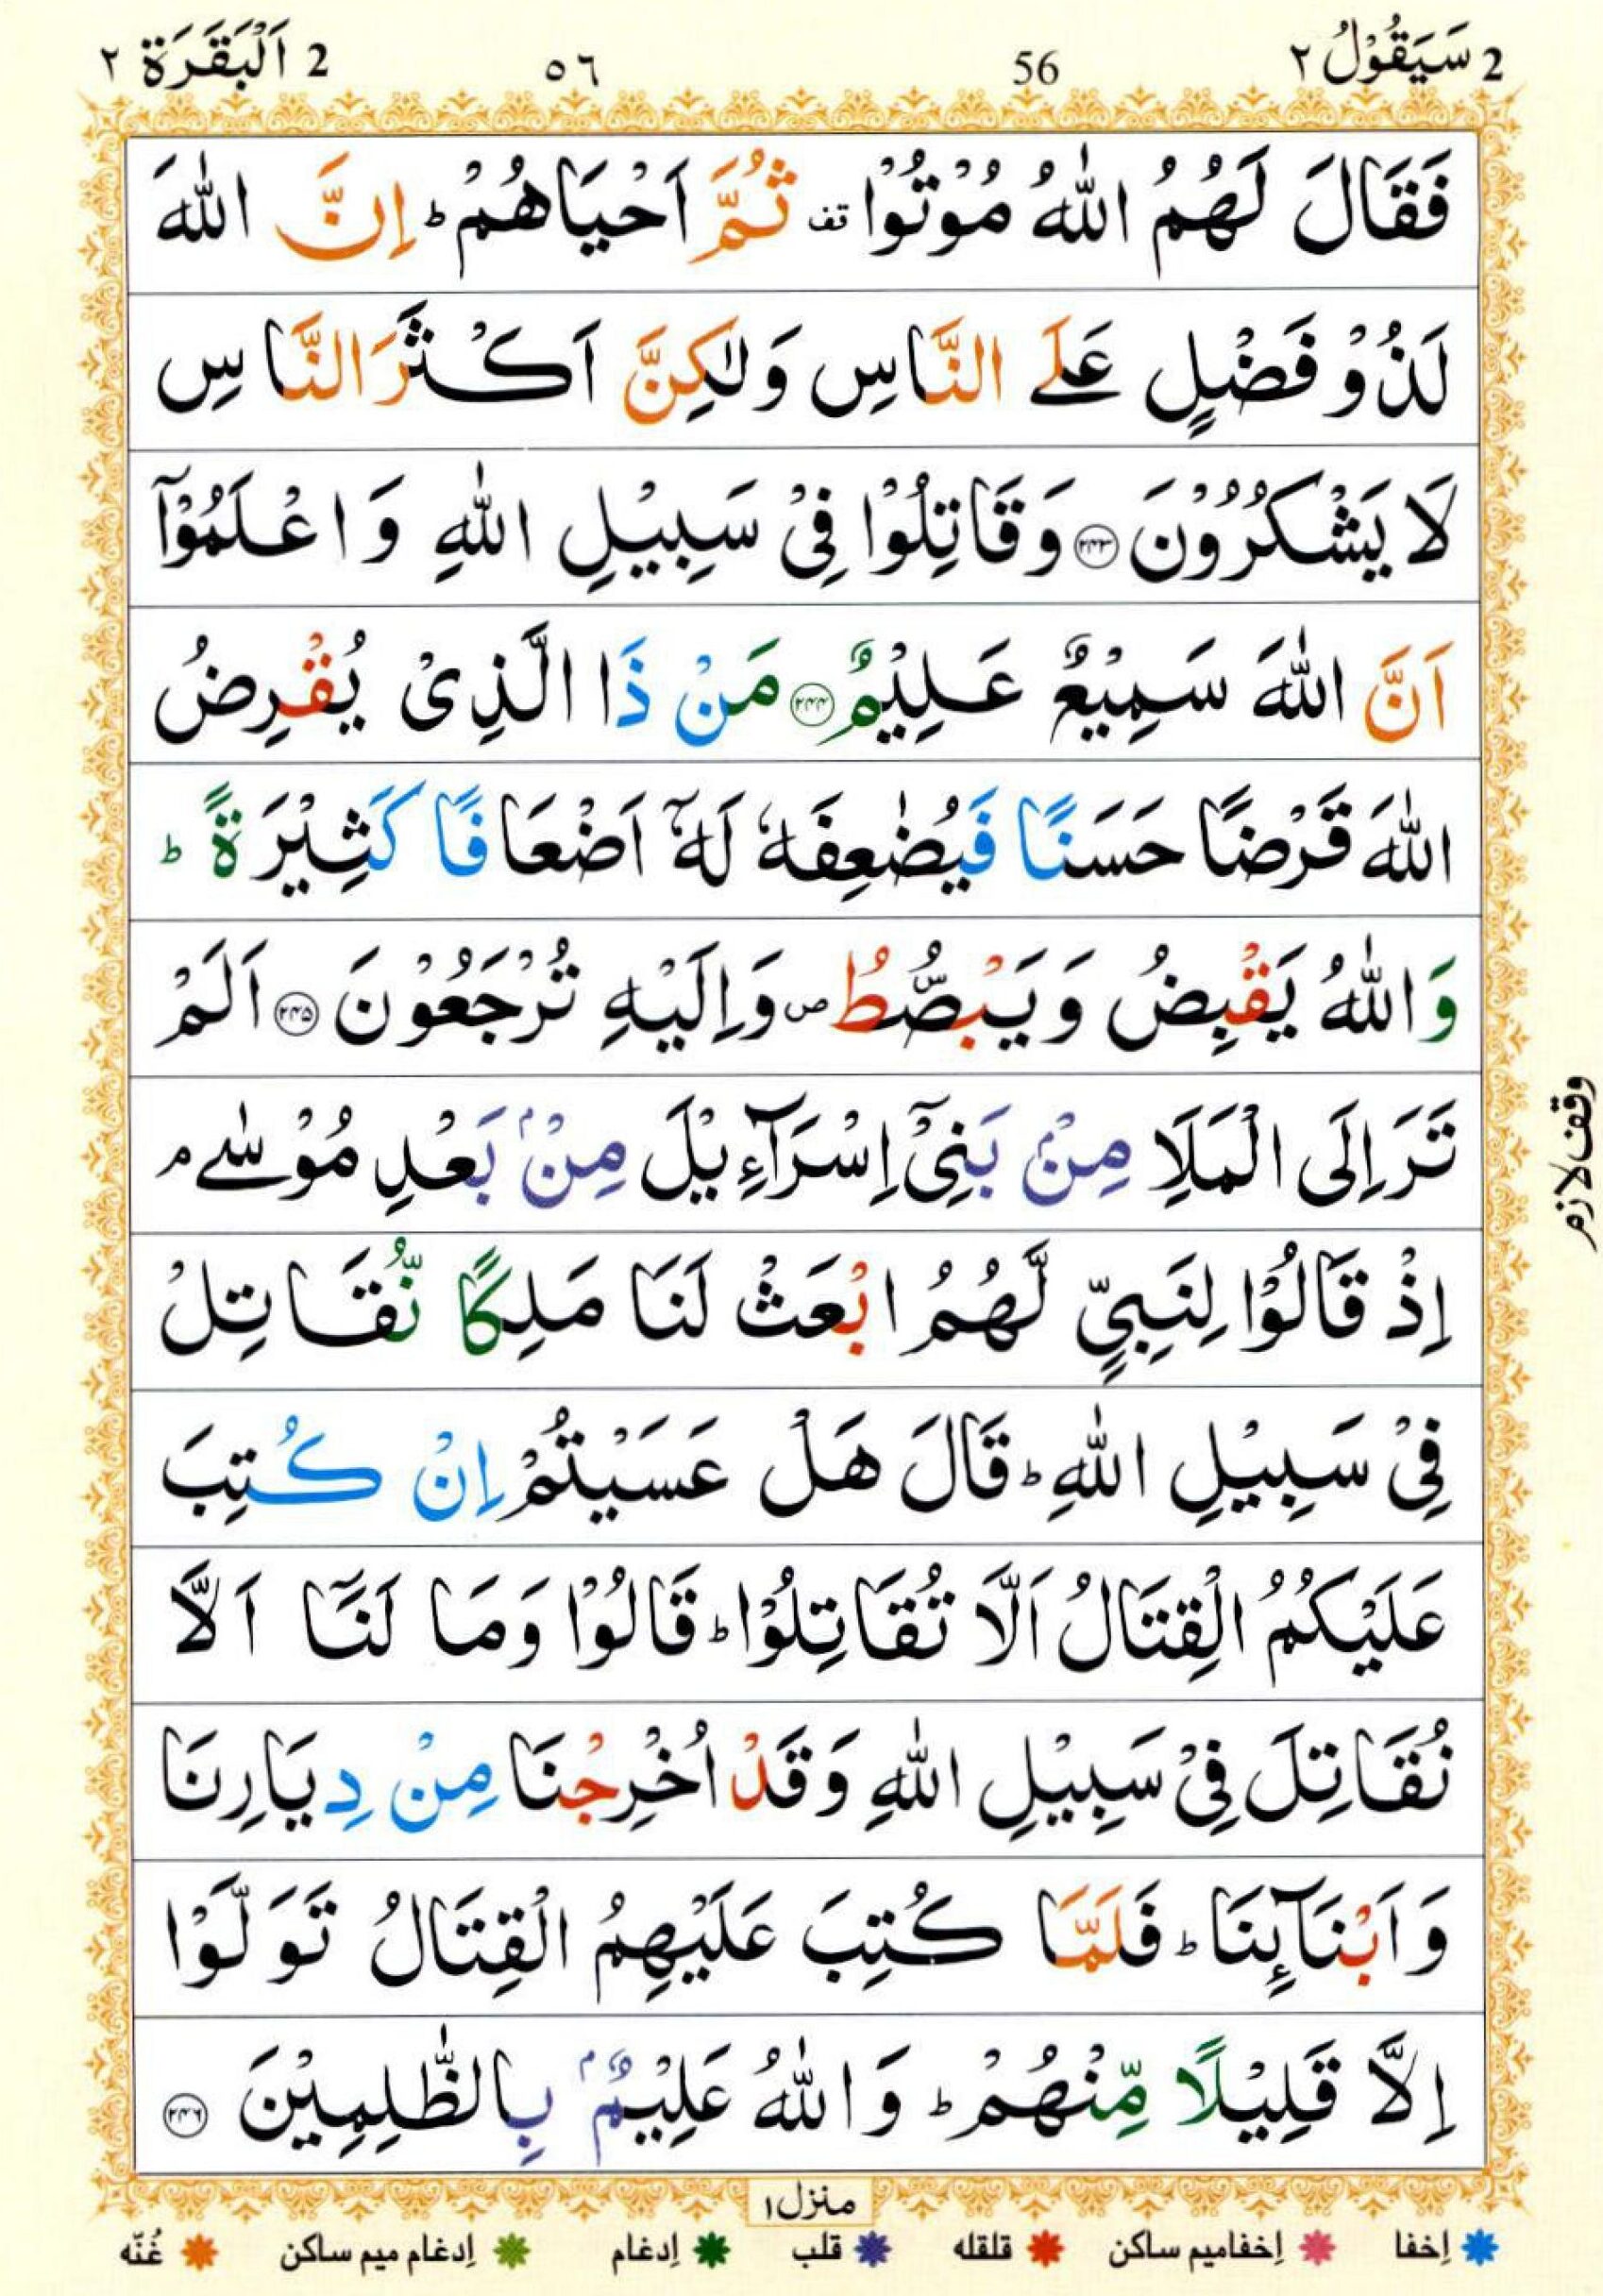 2 سَيَقُوْلُ ٢ 56 ٥٦ 2 اَلْبَقَرَة ٢
فَقَالَ لَهُمُ اللّٰهُ مُوْتُوْا قف ثُمَّ اَحْيَاهُمْ ؕ اِنَّ اللّٰهَ
لَذُوْ فَضْلٍ عَلَى النَّاسِ وَلٰكِنَّ اَكْثَرَ النَّاسِ
لَا يَشْكُرُوْنَ ﴿۲۴۳﴾ وَقَاتِلُوْا فِىْ سَبِيْلِ اللّٰهِ وَاعْلَمُوْۤا
اَنَّ اللّٰهَ سَمِيْعٌ عَلِيْمٌ ﴿۲۴۴﴾ مَنْ ذَا الَّذِىْ يُقْرِضُ
اللّٰهَ قَرْضًا حَسَنًا فَيُضٰعِفَهٗ لَهٗۤ اَضْعَافًا كَثِيْرَةً ؕ
وَاللّٰهُ يَقْبِضُ وَيَبْصُّطُ ص وَاِلَيْهِ تُرْجَعُوْنَ ﴿۲۴۵﴾ اَلَمْ
تَرَ اِلَى الْمَلَاِ مِنْۢ بَنِىْۤ اِسْرَآءِيْلَ مِنْۢ بَعْدِ مُوْسٰى ۘ
اِذْ قَالُوْا لِنَبِىٍّ لَّهُمُ ابْعَثْ لَنَا مَلِكًا نُّقَاتِلْ
فِىْ سَبِيْلِ اللّٰهِ ؕ قَالَ هَلْ عَسَيْتُمْ اِنْ كُتِبَ
عَلَيْكُمُ الْقِتَالُ اَلَّا تُقَاتِلُوْا ؕ قَالُوْا وَمَا لَنَاۤ اَلَّا
نُقَاتِلَ فِىْ سَبِيْلِ اللّٰهِ وَقَدْ اُخْرِجْنَا مِنْ دِيَارِنَا
وَاَبْنَآئِنَا ؕ فَلَمَّا كُتِبَ عَلَيْهِمُ الْقِتَالُ تَوَلَّوْا
اِلَّا قَلِيْلًا مِّنْهُمْ ؕ وَاللّٰهُ عَلِيْمٌۢ بِالظّٰلِمِيْنَ ﴿۲۴۶﴾
وقف لازم
منزل ١
إخفا إخفا ميم ساكن قلقله قلب إدغام إدغام ميم ساكن غُنّه